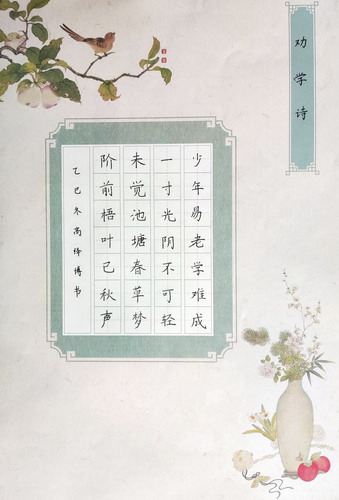 劝学诗
少年易老学难成
一寸光阴不可轻
未觉池塘春草梦
阶前梧叶已秋声
乙巳冬高绎博书